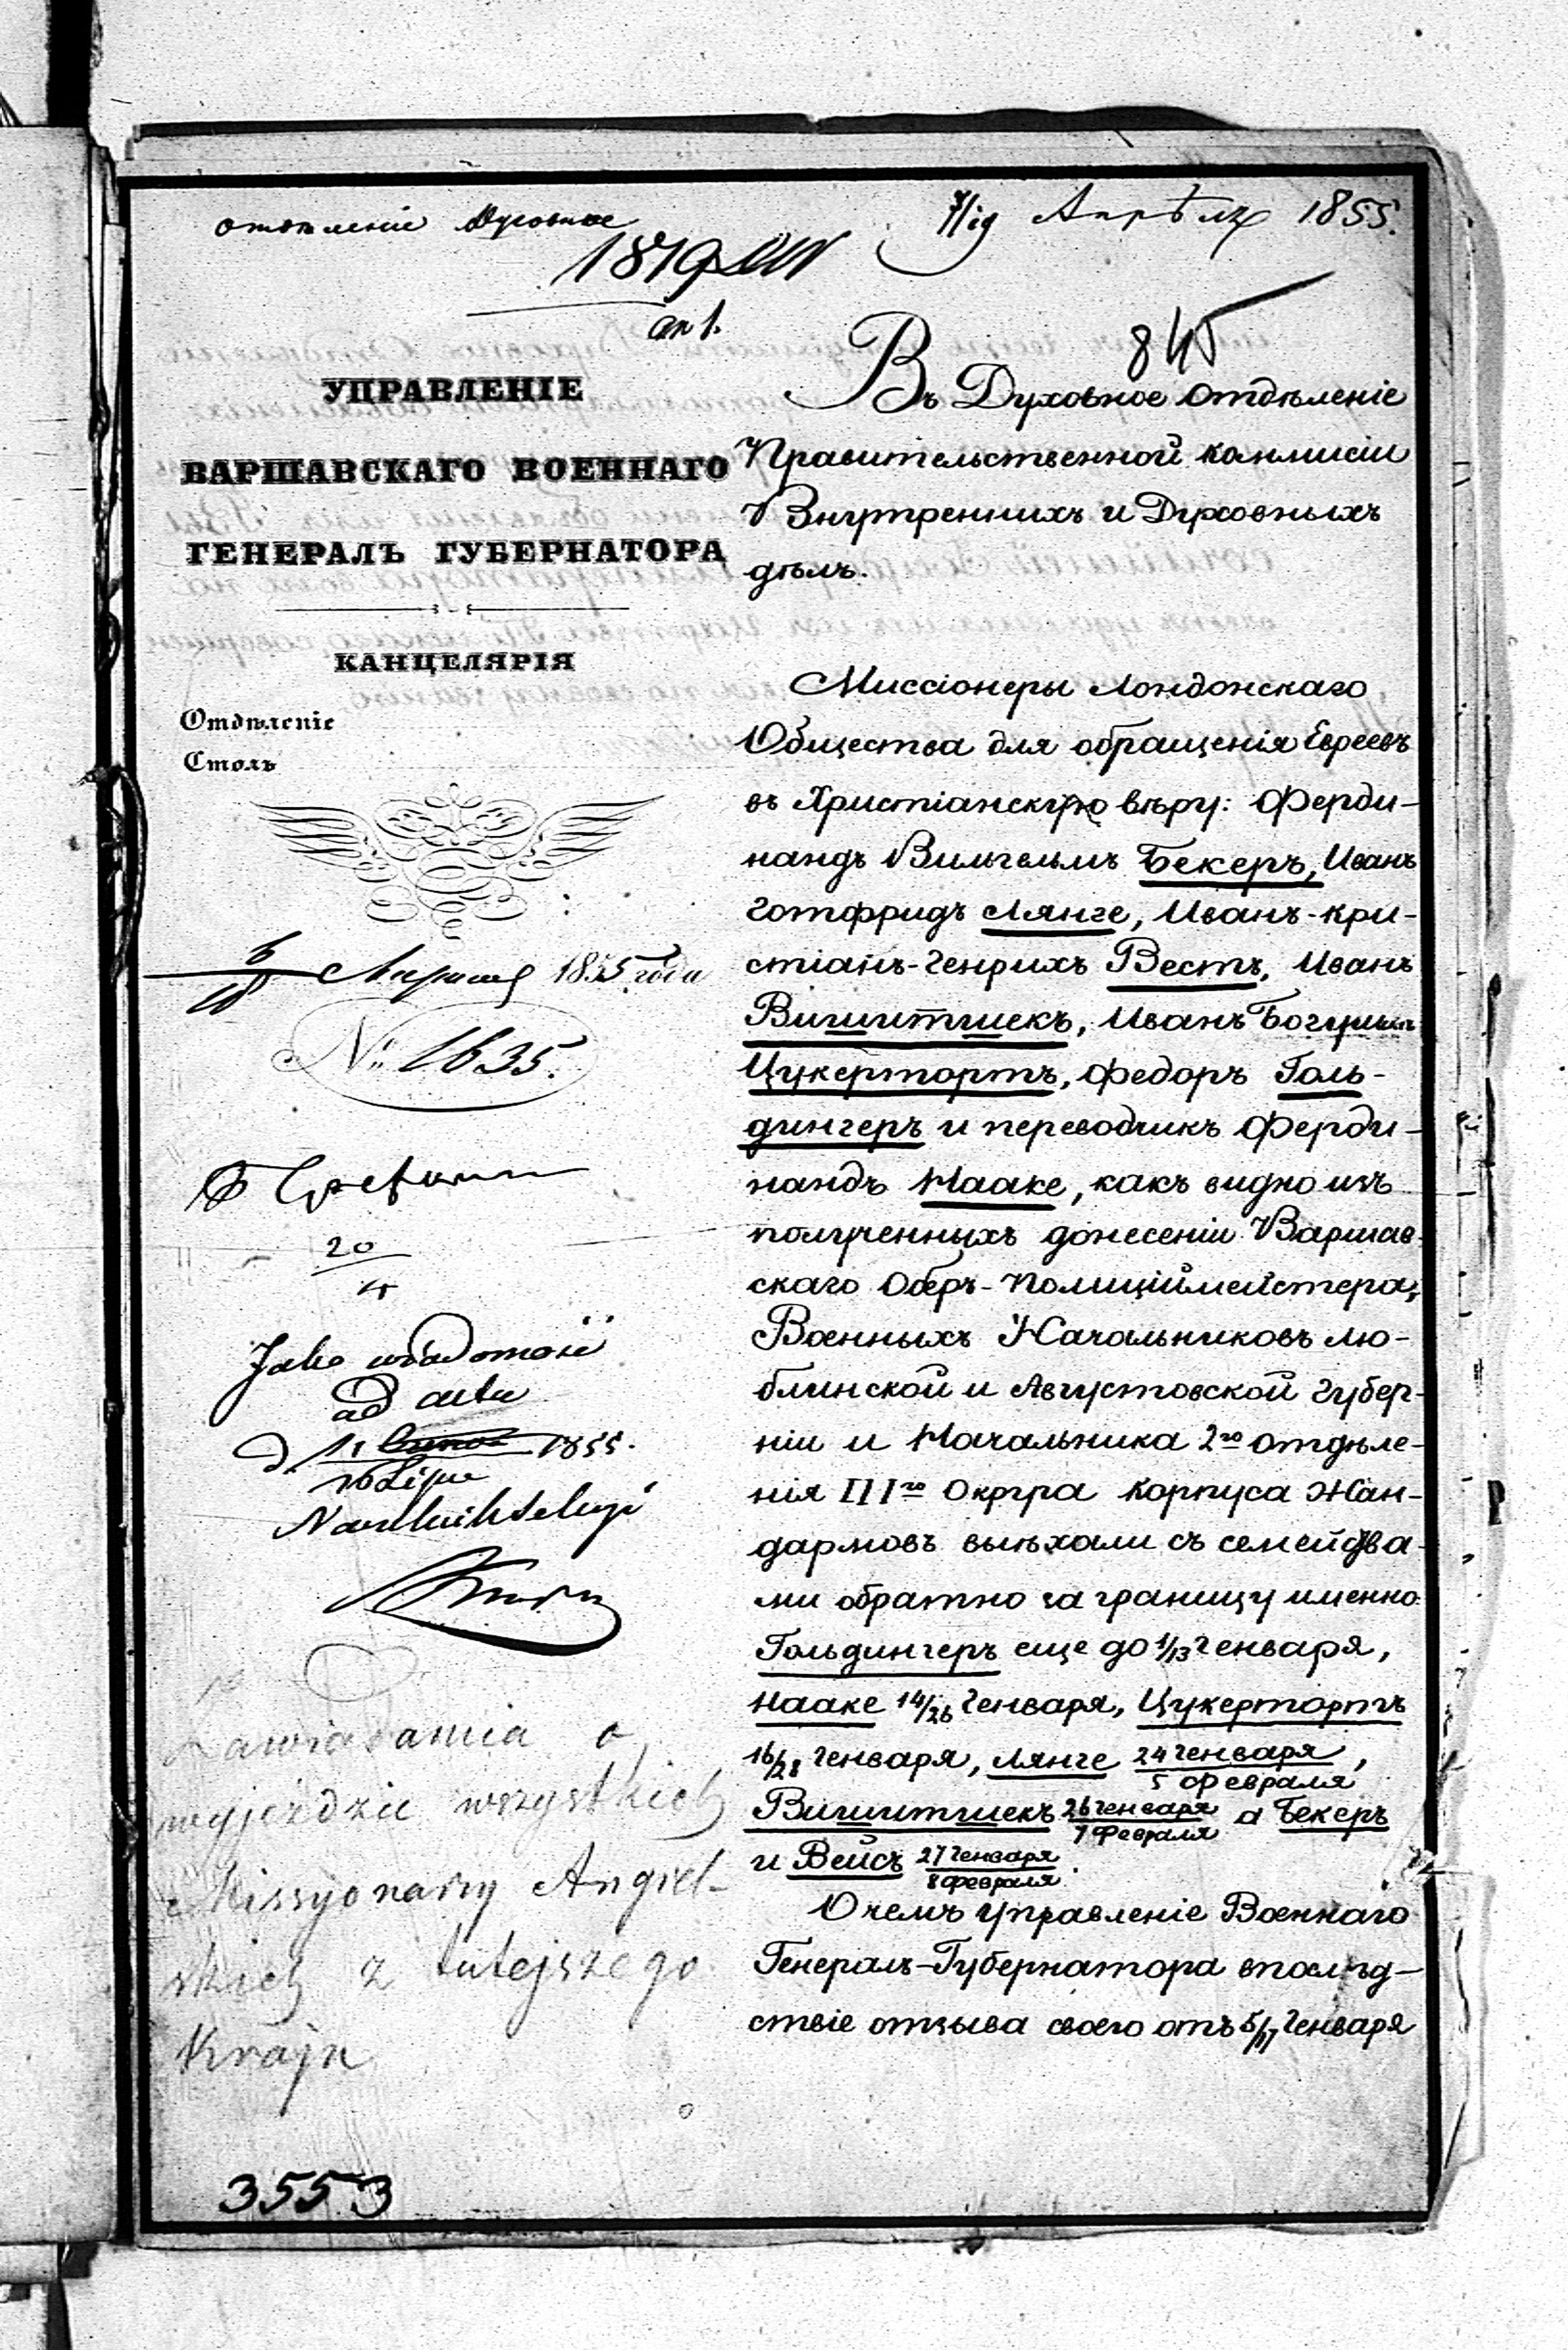 отдѣленіе Духовное
7/19 Апрѣля 1855.
845
УПРАВЛЕНІЕ
ВАРШАВСКАГО ВОЕННАГО
ГЕНЕРАЛЪ ГУБЕРНАТОРА
КАНЦЕЛЯРІЯ
Отдѣленіе
Столъ
1855 года
№ 1635.
20
4
Jako wiadomość
ad acta
1855.
Zawiadamia o
wyjeździe wszystkich
Missyonarzy Angiel-
skich z tutejszego
Kraju
3553
Въ Духовное Отдѣленіе
Правительственной Коммисіи
Внутреннихъ и Духовныхъ
дѣлъ.
Миссіонеры Лондонскаго
Общества для обращенія Евреевъ
въ Христіанскую вѣру: Ферди-
нандъ Вильгельмъ Бекеръ, Иванъ
Готфридъ Лянге, Иванъ-Кри-
стіанъ-Генрихъ Вестъ, Иванъ
Вишитшекъ, Иванъ
Цукертортъ, Федоръ Голь-
дингеръ и переводчикъ Ферди-
нандъ Нааке, какъ видно изъ
полученныхъ донесеніи Варшав-
скаго Оберъ-Полиціймейстера,
Военныхъ Начальниковъ Лю-
блинской и Августовской Губер-
ніи и Начальника 2го Отдѣле-
нія IIIго Округа Корпуса Жан-
дармовъ выѣхали съ семейства-
ми обратно за границу именно
Гольдингеръ еще до 1/13 Генваря,
Нааке 14/26 Генваря, Цукертортъ
16/28 Генваря, Лянге 24 Генваря/5 Февраля,
Вишитшекъ 26 Генваря/7 Февраля а Бекеръ
и Вейсъ 27 Генваря/8 Февраля.
О чемъ Управленіе Военнаго
Генералъ-Губернатора впослѣд-
ствіе отзыва своего отъ 5/17 Генваря